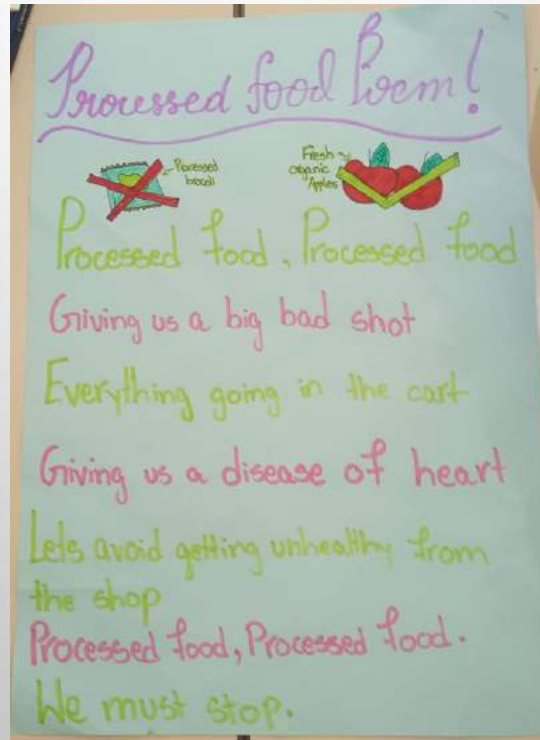 Processed food Poem!
Processed
brocoli
Fresh
organic
Apples
Processed food, Processed food
Giving us a big bad shot
Everything going in the cart
Giving us a disease of heart
Lets avoid getting unhealthy from
the shop
Processed food, Processed food.
We must stop.